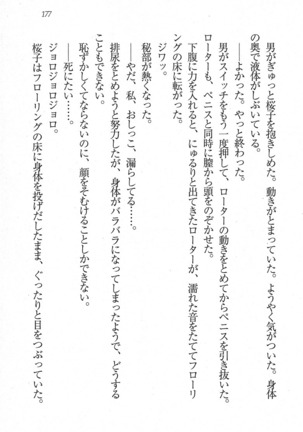 177
男がぎゅっと桜子を抱きしめた。動きがとまった。ようやく気がついた。身体
の奥で液体がしぶいている。
——よかった。やっと終わった。
男がスイッチをもう一度押して、ローターの動きをとめてからペニスを引き抜いた。
ローターも、ペニスと同時に膣から頭をのぞかせた。
下腹に力を入れると、にゅるりと出てきたローターが、濡れた音をたててフローリ
ングの床に転がった。
ジワッ。
秘部が熱くなった。
——やだ、私、おしっこ、漏らしてる……。
排尿をとめようと努力したが、身体がバラバラになってしまったようで、どうする
こともできない。
恥ずかしくてならないのに、顔をそむけることしかできない。
——死にたい……。
ジョロジョロジョロ。
桜子はフローリングの床に身体を投げだしたまま、ぐったりと目をつぶっていた。